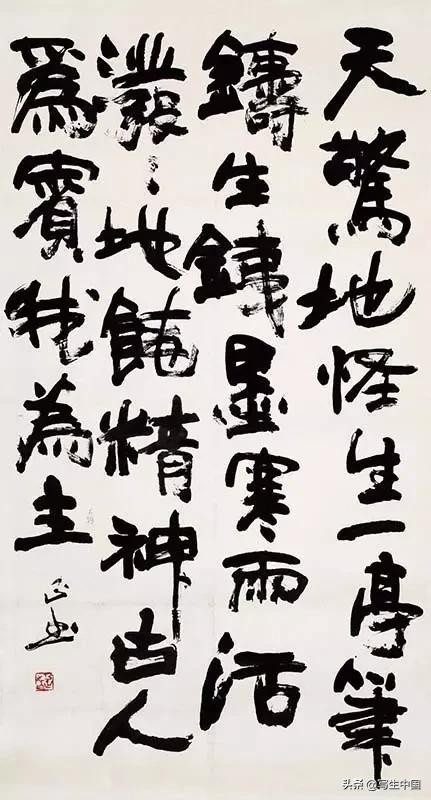 天驚地怪生一亭筆
鑄生銕墨寒雨活
潑〻地饒精神古人
爲賓我為主
头条 @写生中国